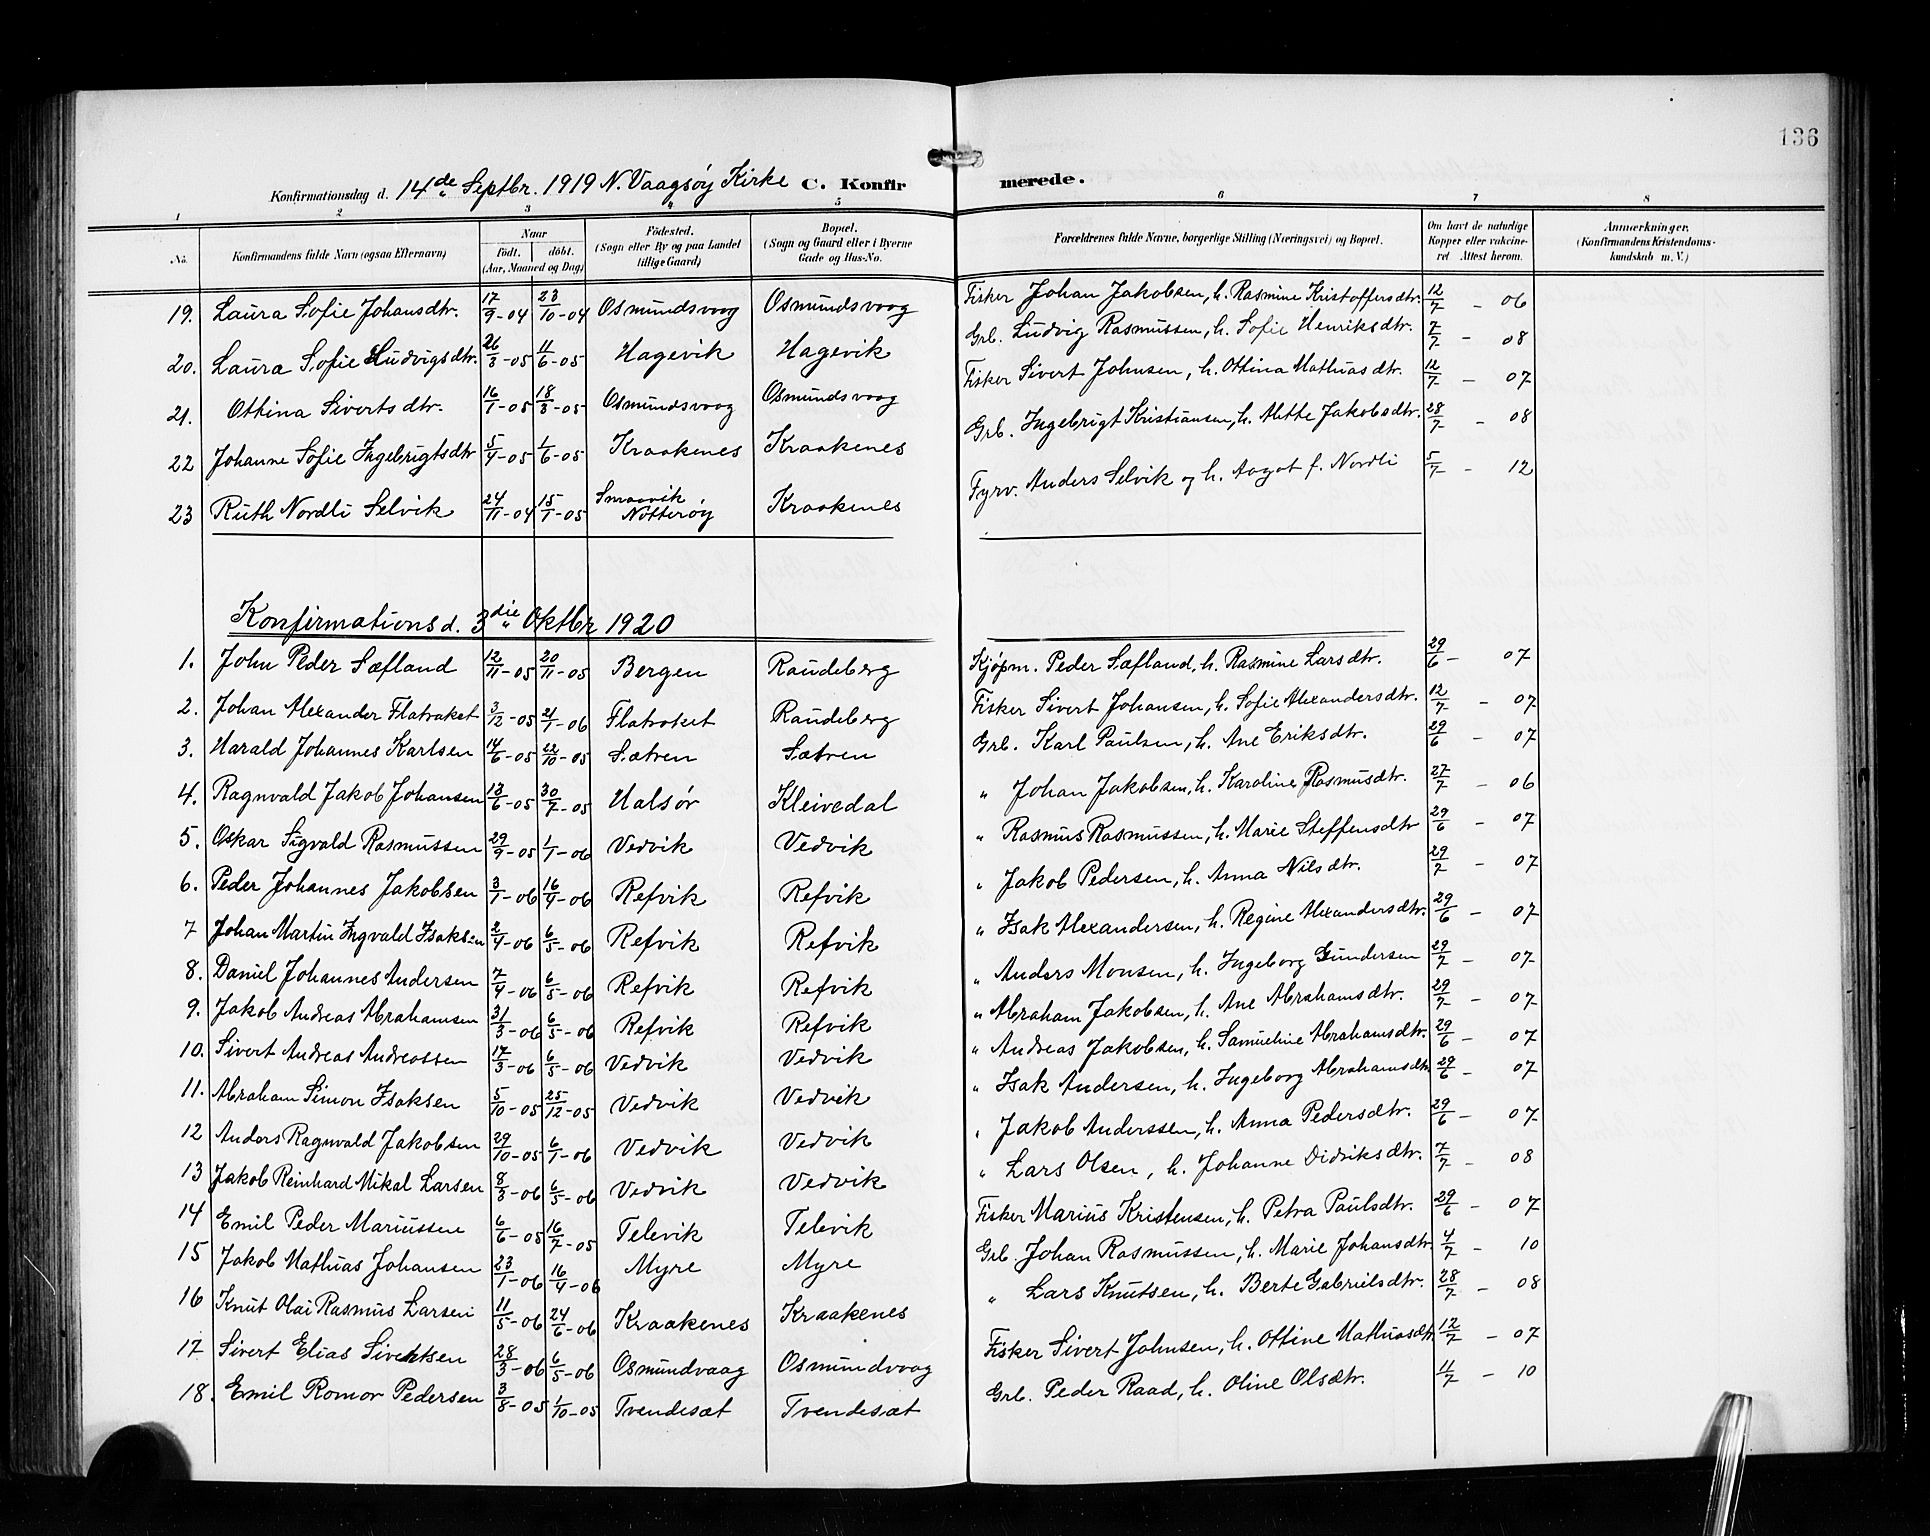 136
Konfirmationsdag d. 14de Septbr. 1919 N. Vaagsøy Kirke C. Konfirmerede.
1 2 3 4 5 6 7 8
No. Konfirmandens fulde Navn (ogsaa Efternavn) Naar Födt. döbt. (Aar, Maaned og Dag) Födested. (Sogn eller By og paa Landet tillige Gaard) Bopæl. (Sogn og Gaard eller i Byerne Gade og Hus-No. Forældrenes fulde Navne, borgerlige Stilling (Næringsvei) og Bopæl. Om havt de naturlige Kopper eller vakcineret. Attest herom. Anmærkninger, (Konfirmandens Kristendomskundskab m. V.)
19. Laura Sofie Johansdtr. 17/9-04 23/10-04 Osmundsvaag Osmundsvaag Fisker Johan Jakobsen, h. Rasmine Kristoffersdtr. 12/7 - 06
20. Laura Sofie Ludvigsdtr. 26/3-05 11/6-05 Hagevik Hagevik Grb. Ludvig Rasmussen, h. Sofie Henriksdtr. 7/7 - 08
21. Ottina Sivertsdtr. 16/1-05 18/3-05 Osmundsvaag Osmundsvaag Fisker Sivert Johnsen, h. Ottina Mathiasdtr. 12/7 - 07
22 Johanne Sofie Ingebrigtsdtr 5/4-05 1/6-05 Kraakenes Kraakenes Grb. Ingebrigt Kristiansen, h. Mette Jakobsdtr. 28/7 - 08
23 Ruth Nordli Selvik 24/11-04 15/1-05 Smaavik, Nötterøy Kraakenes Fyrv. Anders Selvik og h. Aagot f. Nordli 5/7 - 12
Konfirmations d. 3die Oktbr 1920
1. John Peder Sæfland 12/11-05 20/11-05 Bergen Raudeberg Kjøpm. Peder Sæfland, h. Rasmine Larsdtr. 29/6 - 07
2. Johan Alexander Flatraket 3/12-05 21/1-06 Flatraket Raudeberg Fisker Sivert Johansen, h. Sofie Alexandersdtr. 12/7 - 07
3. Harald Johannes Karlsen 14/6-05 22/10-05 Sætren Sætren Grb. Karl Paulsen, h. Ane Eriksdtr. 29/6 - 07
4. Ragnvald Jakob Johansen 13/6-05 30/7-05 Halsør Kleivedal " Johan Jakobsen, h. Karoline Rasmusdtr. 27/7 - 06
5. Oskar Sigvald Rasmussen 29/9-05 1/1-06 Vedvik Vedvik " Rasmus Rasmussen, h. Marie Steffensdtr 29/6 - 07
6. Peder Johannes Jakobsen 3/1-06 16/4-06 Refvik Refvik " Jakob Pedersen, h. Anna Nilsdtr. 29/7 07
7 Johan Martin Ingvald Isaksen 2/4-06 6/5-06 Refvik Refvik " Isak Alexandersen, h. Regine Alexandersdtr. 29/6 - 07
8. Daniel Johannes Andersen 7/4-06 6/5-06 Refvik Refvik " Anders Monsen, h. Ingeborg Gundersen 29/7 - 07
9. Jakob Andreas Abrahamsen 31/3-06 6/5-06 Refvik Refvik " Abraham Jakobsen, h. Ane Abrahamsdtr. 29/7 - 07
10. Sivert Andreas Andreassen 17/3-06 6/5-06 Vedvik Vedvik " Andreas Jakobsen, h. Samueline Abrahamsdtr. 29/6 - 07
11. Abraham Simon Isaksen 5/10-05 25/12-05 Vedvik Vedvik " Isak Andersen, h. Ingeborg Abrahamsdtr 29/6 - 07
12 Anders Ragnvald Jakobsen 29/10-05 6/1-06 Vedvik Vedvik " Jakob Anderssen, h. Anna Pedersdtr. 29/6 - 07
13 Jakob Reinhard Mikal Larsen 8/3-06 6/5-06 Vedvik Vedvik " Lars Olsen, h. Johanne Didriksdtr. 7/7 - 08
14 Emil Peder Mariussen 6/6-05 16/7-05 Televik Televik Fisker Marius Kristensen, h. Petra Paulsdtr. 29/6 - 07
15 Jakob Mathias Johansen 23/1-06 16/4-06 Myre Myre Grb. Johan Rasmussen, h. Marie Johansdtr. 4/7 - 10
16 Knut Olai Rasmus Larsen 11/5-06 24/6-06 Kraakenes Kraakenes " Lars Knutsen, h. Berte Gabrielsdtr. 28/7 - 08
17 Sivert Elias Sivertsen 28/3-06 6/5-06 Osmundvaag Osmundvaag Fisker Sivert Johnsen, h. Ottine Mathiasdtr 12/7 - 07
18. Emil Romor Pedersen 3/8-05 1/10-05 Tvendesæt Tvendesæt Grb. Peder Raad, h. Oline Olsdtr. 11/7 - 10